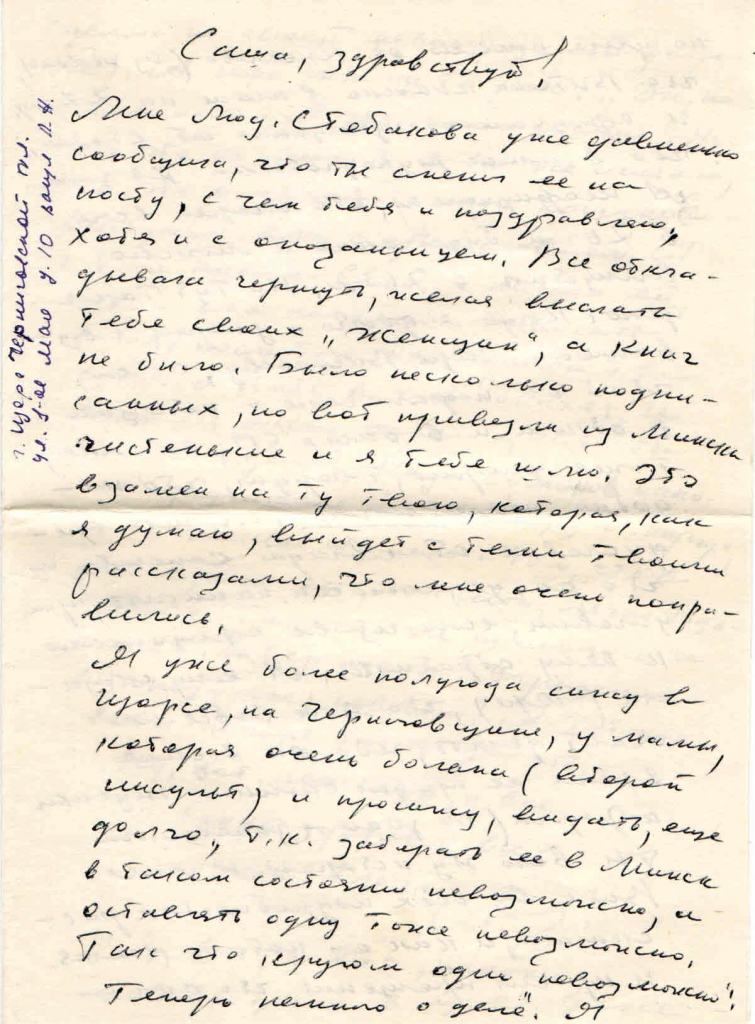 Саша, здравствуй!
Мне Люд. Стебакова уже давненько
сообщила, что ты сменил ее на
посту, с чем тебя и поздравляю,
хотя и с опозданьицем. Все откла-
дывала черкнуть, желая выслать
тебе своих „Женщин", а книг
не было. Было несколько подпи-
санных, но вот привезли из Минска
чистенькие и я тебе шлю. Это
взамен на ту твою, которая, как
я думаю, выйдет с теми твоими
рассказами, что мне очень понра-
вились.
Я уже более полугода сижу в
Щорсе, на Черниговщине, у мамы,
которая очень больна (второй
инсульт) и просижу, видать, еще
долго, т.к. забирать ее в Минск
в таком состоянии невозможно, и
оставлять одну тоже невозможно.
Так что кругом одни „невозможно"!
Теперь немного о деле. Я
г. Щорс Черниговской
ул. 1-ое Мая д. 10